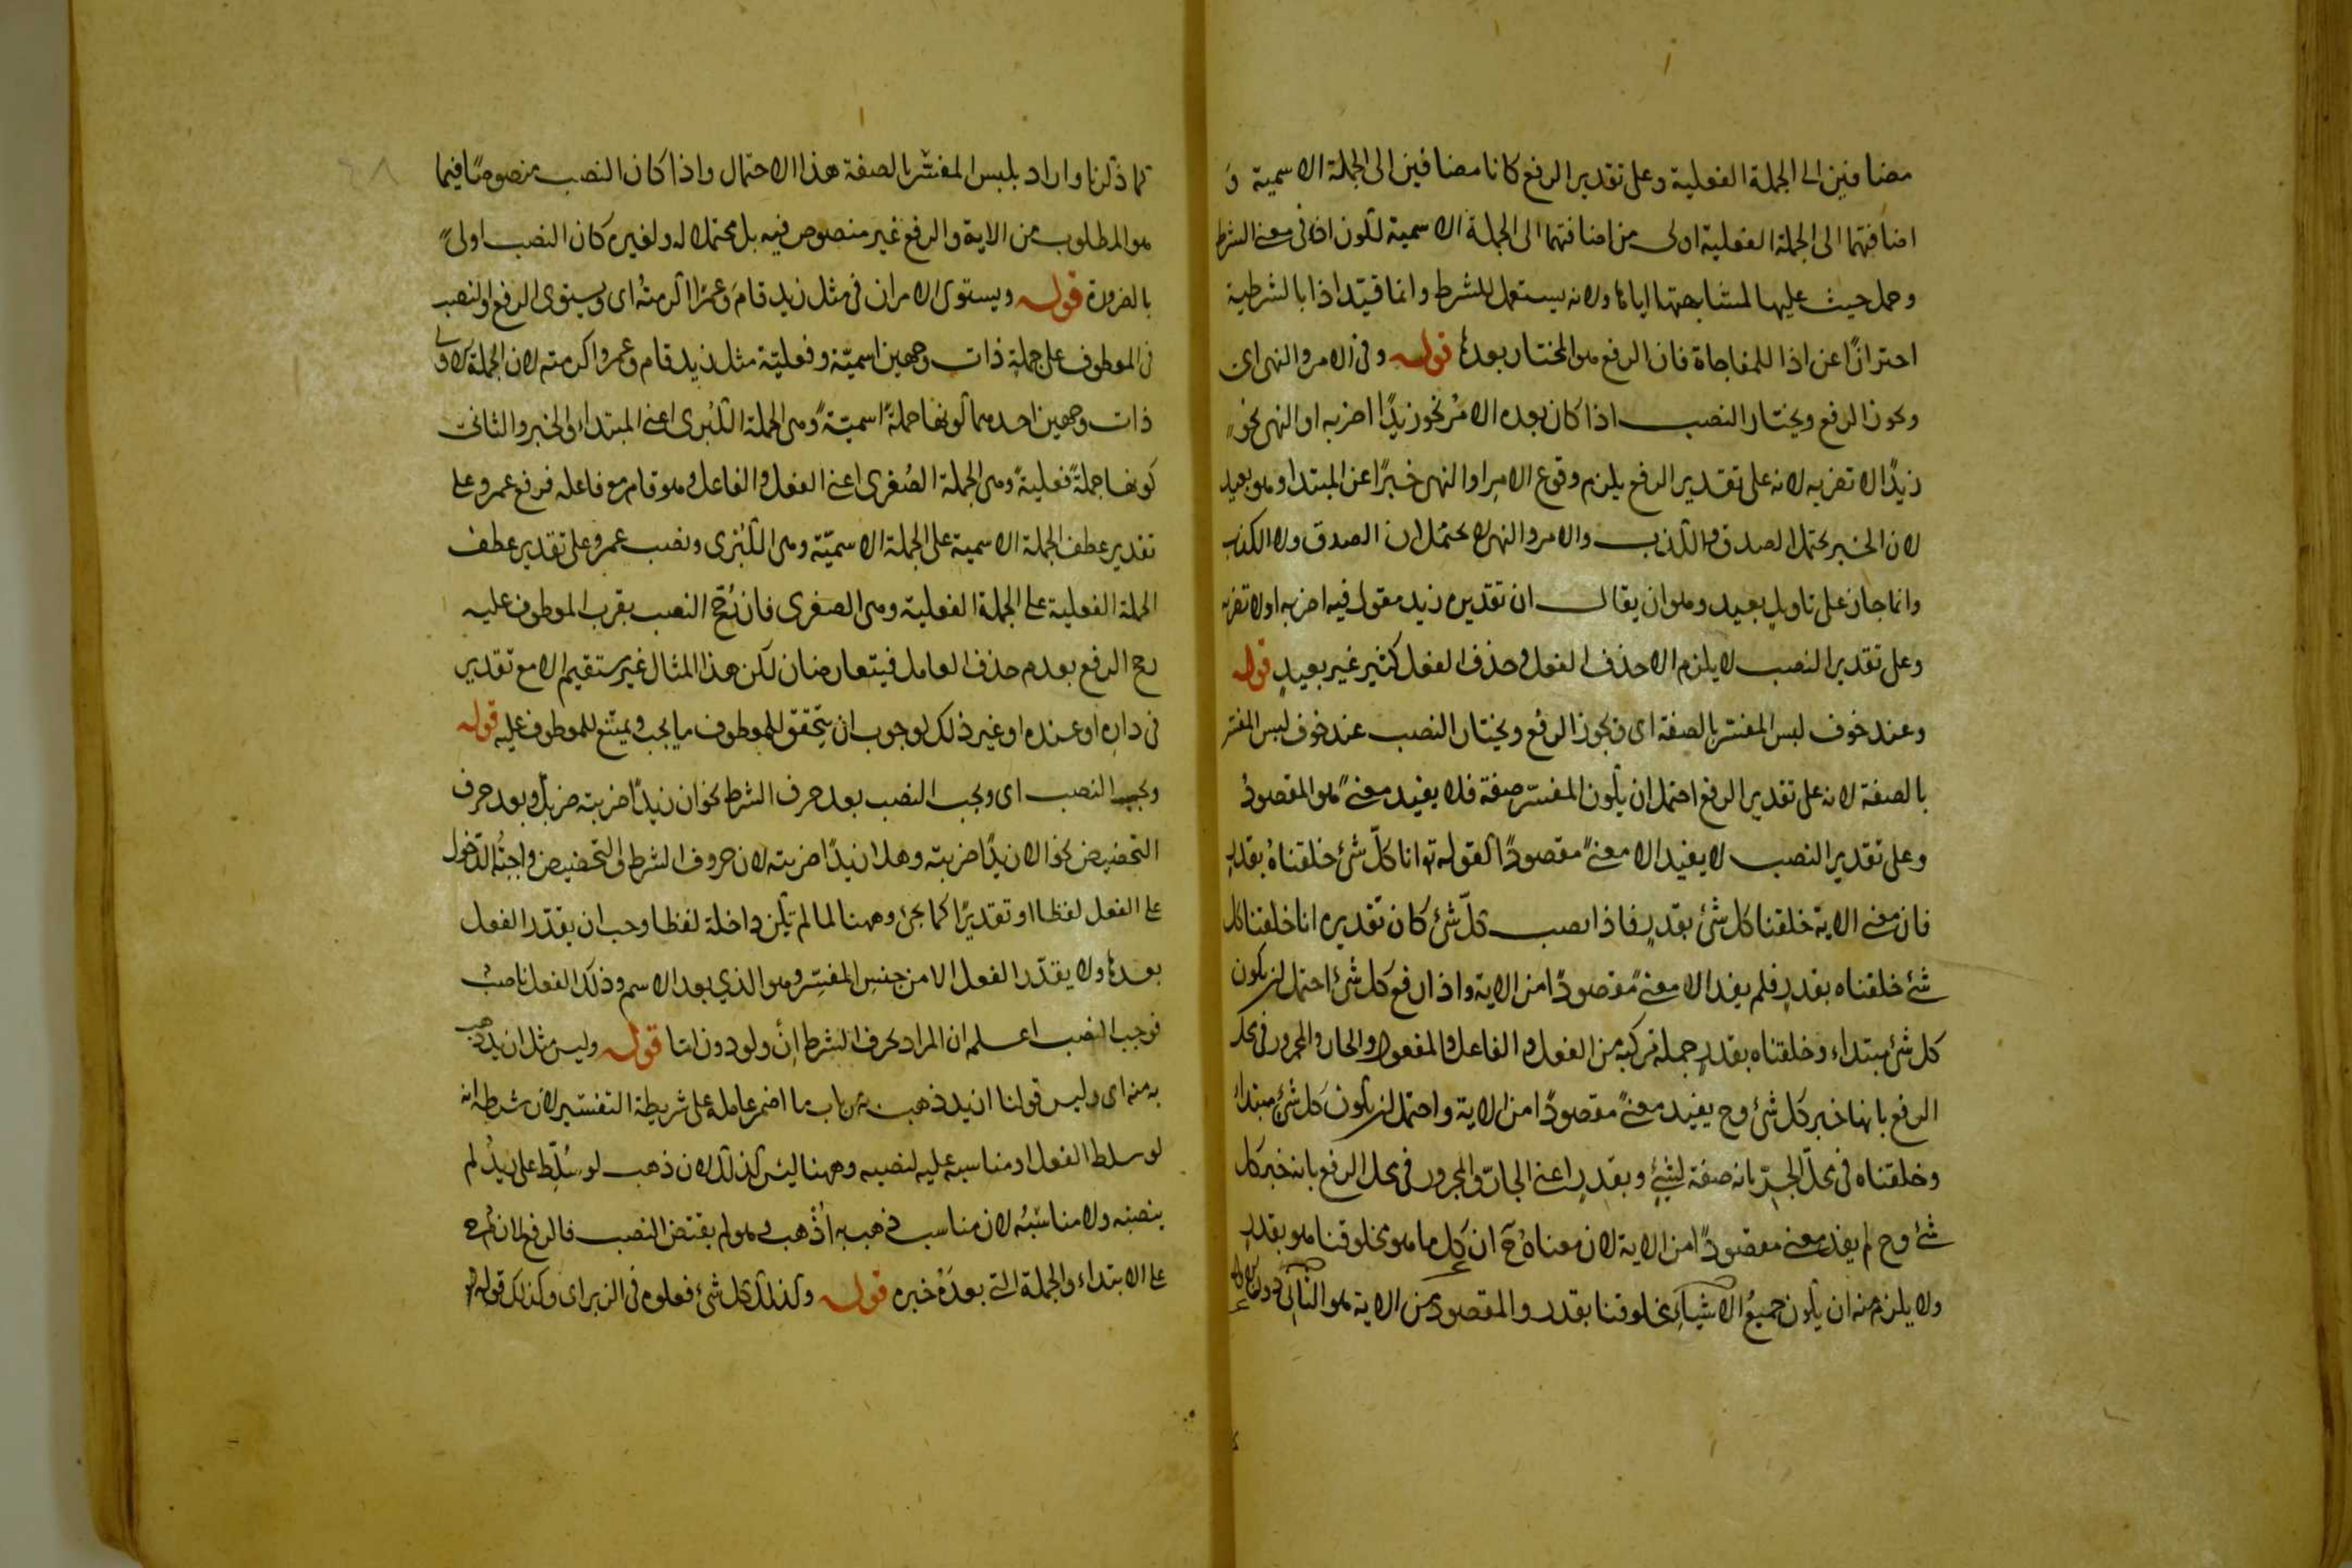 مضافين الى الجملة الفعلية وعلى تقدير الرفع كانا مضافين الى الجملة الاسمية و
اضافتهما الى الجملة الفعلية اولى من اضافتهما الى الجملة الاسمية لكون اذا فى معنى الشرط
وحمل حيث عليها لمشابهتها اياها ولانه يستعمل للشرط وانما قيّد اذا بالشرطية
احترازًا عن اذا للمفاجاة فان الرفع هو المختار بعدها قوله وفى الامر والنهى اى
ويجوز الرفع ويختار النصب اذا كان بعده الامر نحو زيدًا اضربه او النهى نحو
زيدًا لا تضربه لانه على تقدير الرفع يلزم وقوع الامر او النهى خبرًا عن المبتدا وهو بعيد
لان الخبر يحتمل الصدق والكذب والامر والنهى لا يحتملان الصدق ولا الكذب
وانما جاز على تاويل بعيد وهو ان يقال ان تقديره زيد مقول فيه اضربه او لا تضربه
وعلى تقدير النصب لا يلزم الا حذف الفعل وحذف الفعل كثير غير بعيد قوله
وعند خوف لبس المفسّر بالصفة اى ويجوز الرفع ويختار النصب عند خوف لبس المفسر
بالصفة لانه على تقدير الرفع احتمل ان يكون المفسر صفة فلا يفيد معنى هو المقصود
وعلى تقدير النصب لا يفيد الا معنى مقصودًا كقوله تع انا كلّ شئ خلقناه بقدر
فان معنى الاية خلقنا كل شئ بقدر فاذا نصب كلّ شئ كان تقديره انا خلقنا كل
شئ خلقناه بقدر فلم يفد الا معنى مقصودًا من الاية واذا رفع كل شئ احتمل ان يكون
كل شئ مبتداء وخلقناه بقدر جملة مركبة من الفعل والفاعل والمفعول والجار والمجرور فى محل
الرفع بانها خبر كل شئ وح يفيد معنى مقصودًا من الاية واحتمل ان يكون كل شئ مبتداء
وخلقناه فى محلّ الجرّ بانه صفة لشئ وبقدر اعنى الجارّ والمجرور فى محل الرفع بانه خبر كل
شئ وح لم يفد معنى مقصودًا من الاية لان معناه ح ان كل ما هو مخلوقنا هو بقدر
ولا يلزم منه ان يكون جميع الاشياء مخلوقنا بقدر والمقصود من الاية هو الثانى دون
كما ذكرنا واراد بلبس المفسّر بالصفة هذا الاحتمال واذا كان النصب منصوصًا فيما
هو المطلوب من الاية والرفع غير منصوص فيه بل محتمل له ولغيره كان النصب اولى
بالضرورة قوله ويستوى الامران فى مثل زيد قام وعمرًا اكرمته اى ويستوى الرفع والنصب
فى المعطوف على جملة ذات وجهين اسميّة وفعليّة مثل زيد قام وعمروا اكرمته لان الجملة الاولى
ذات وجهين احدهما كونها جملةً اسميّةً وهى الجملة الكبرى اعنى المبتداء والخبر والثانى
كونها جملةً فعليةً وهى الجملة الصُغرى اعنى الفعل والفاعل وهو قام مع فاعله فرفع عمرو على
تقدير عطف الجملة الاسمية على الجملة الاسميّة وهى الكبرى ونصب عمرو على تقدير عطف
الجملة الفعلية على الجملة الفعلية وهى الصغرى فان رُجّح النصب بقرب المعطوف عليه
رجح الرفع بعدم حذف العامل فيتعارضان لكن هذا المثال غير مستقيم الا مع تقدير
فى داره او عنده او غير ذلك لوجوب ان يتحقق للمعطوف ما يجب ويمتنع للمعطوف عليه قوله
ويجب النصب اى ويجب النصب بعد حرف الشرط نحو ان زيدًا ضربته ضربك وبعد حرف
التحضيض نحو الا زيدًا ضربته وهلا زيدًا ضربته لان حروف الشرط والتحضيض واجبُ الدخول
على الفعل لفظا او تقديرًا كما يجئ وههنا لما لم تكن داخلة لفظا وجب ان يقدّر الفعل
بعدها ولا يقدّر الفعل الا من جنس المفسِّر وهو الذي بعد الاسم وذلك الفعل ناصبٌ
فوجب النصب اعلم ان المراد بحرف الشرط ان ولو دون امّا قوله وليس مثل ازيد ذهب
به منه اى وليس قولنا ازيد ذهب به من باب ما اضمر عامله على شريطة التفسير لان شرطه انه
لو سلط الفعل او مناسبه عليه لنصبه وههنا ليس كذلك لان ذهب لو سُلّط على زيدٌ لم
ينصبه ولا مناسبُه لان مناسب ذهب به اُذهب وهو لم يقتض النصب فالرفع لازم
على الابتداء والجملة التى بعده خبره قوله وكذلك كل شئ فعلوه فى الزبر اى وكذلك قوله